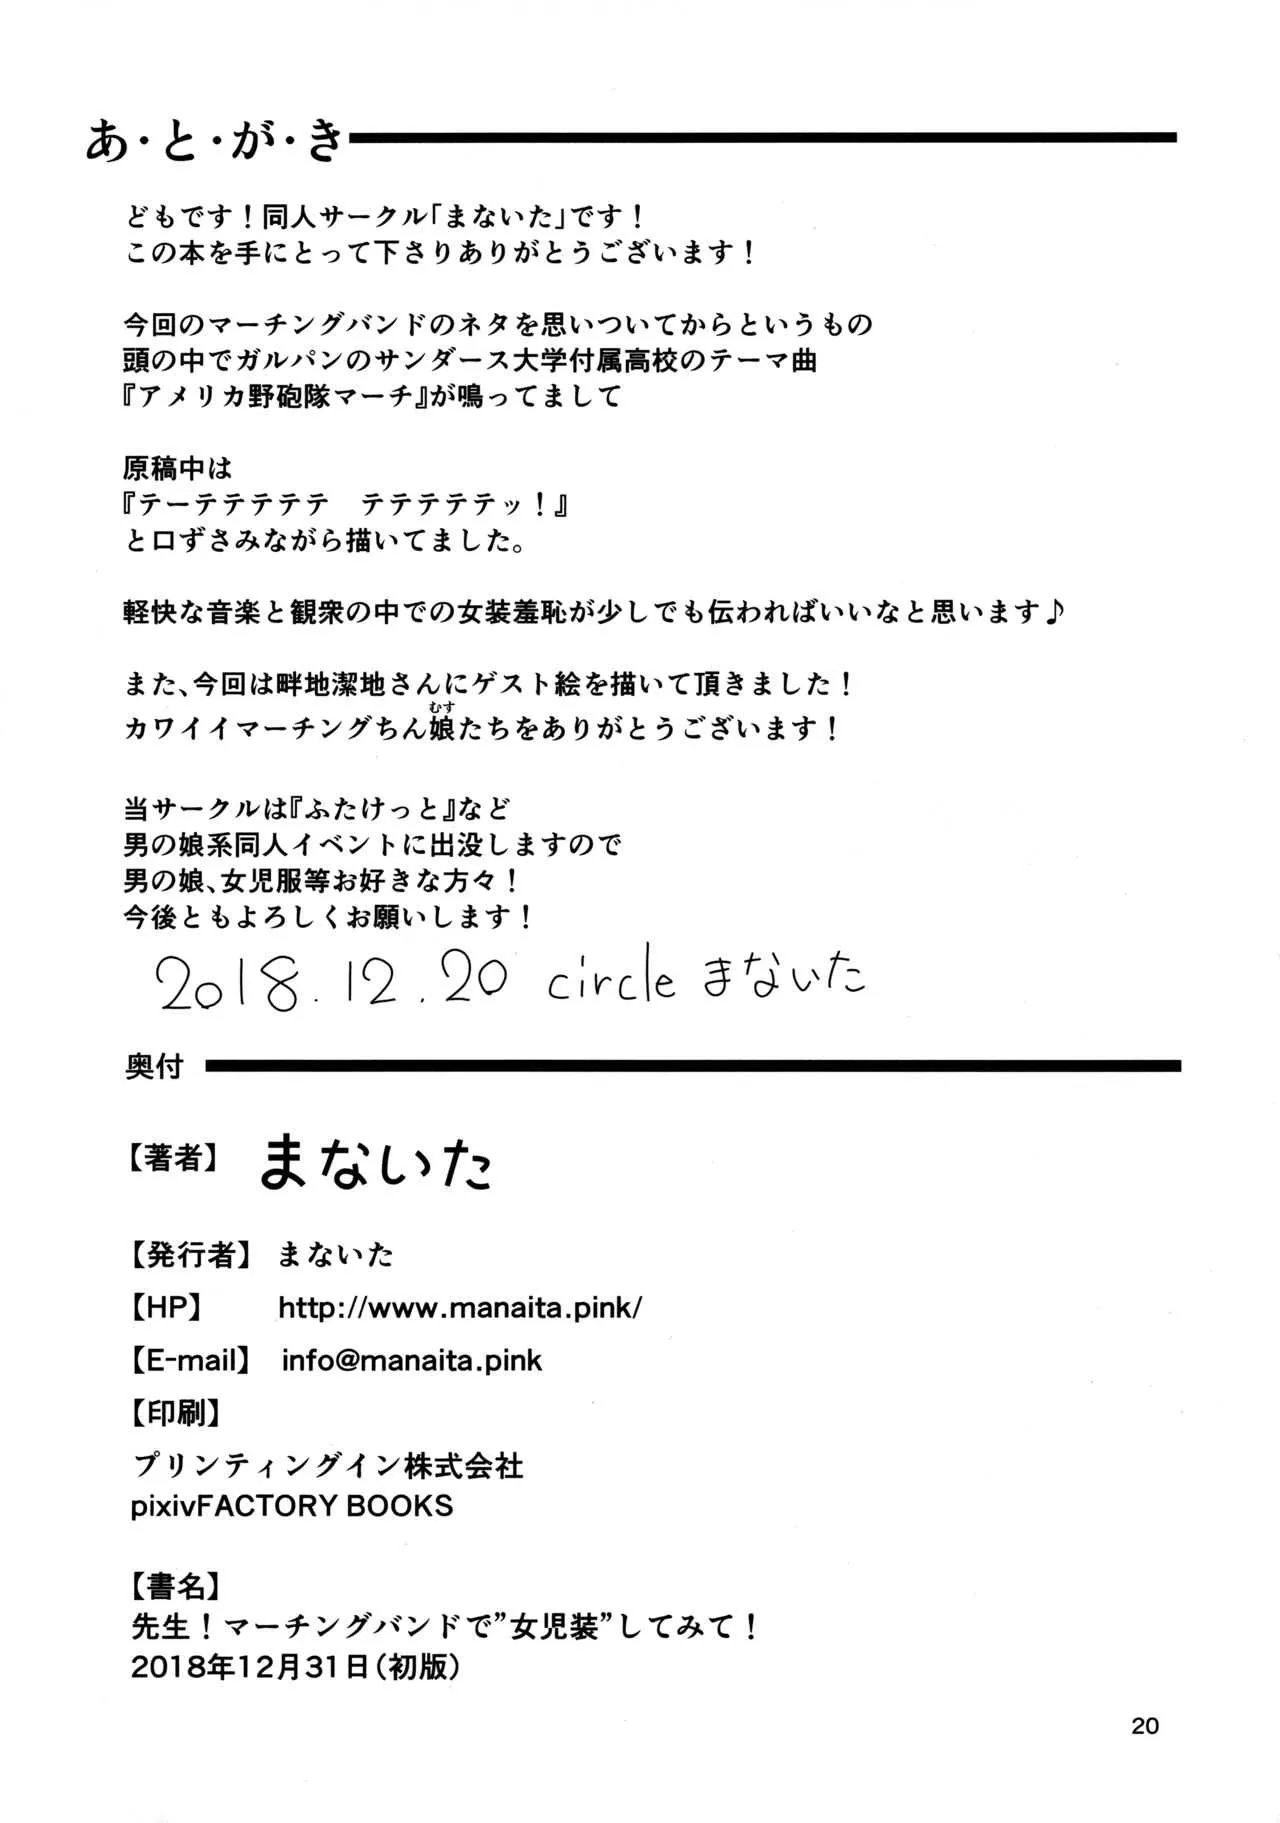 あ・と・が・き
どもです！同人サークル「まないた」です！
この本を手にとって下さりありがとうございます！
今回のマーチングバンドのネタを思いついてからというもの
頭の中でガルパンのサンダース大学付属高校のテーマ曲
『アメリカ野砲隊マーチ』が鳴ってまして
原稿中は
『テーテテテテテ　テテテテテッ！』
と口ずさみながら描いてました。
軽快な音楽と観衆の中での女装羞恥が少しでも伝わればいいなと思います♪
また、今回は畔地潔地さんにゲスト絵を描いて頂きました！
むす
カワイイマーチングちん娘たちをありがとうございます！
当サークルは『ふたけっと』など
男の娘系同人イベントに出没しますので
男の娘、女児服等お好きな方々！
今後ともよろしくお願いします！
2018.12.20 circle まないた
奥付
【著者】 まないた
【発行者】 まないた
【HP】 http://www.manaita.pink/
【E-mail】 info@manaita.pink
【印刷】
プリンティングイン株式会社
pixivFACTORY BOOKS
【書名】
先生！マーチングバンドで”女児装”してみて！
2018年12月31日（初版）
20